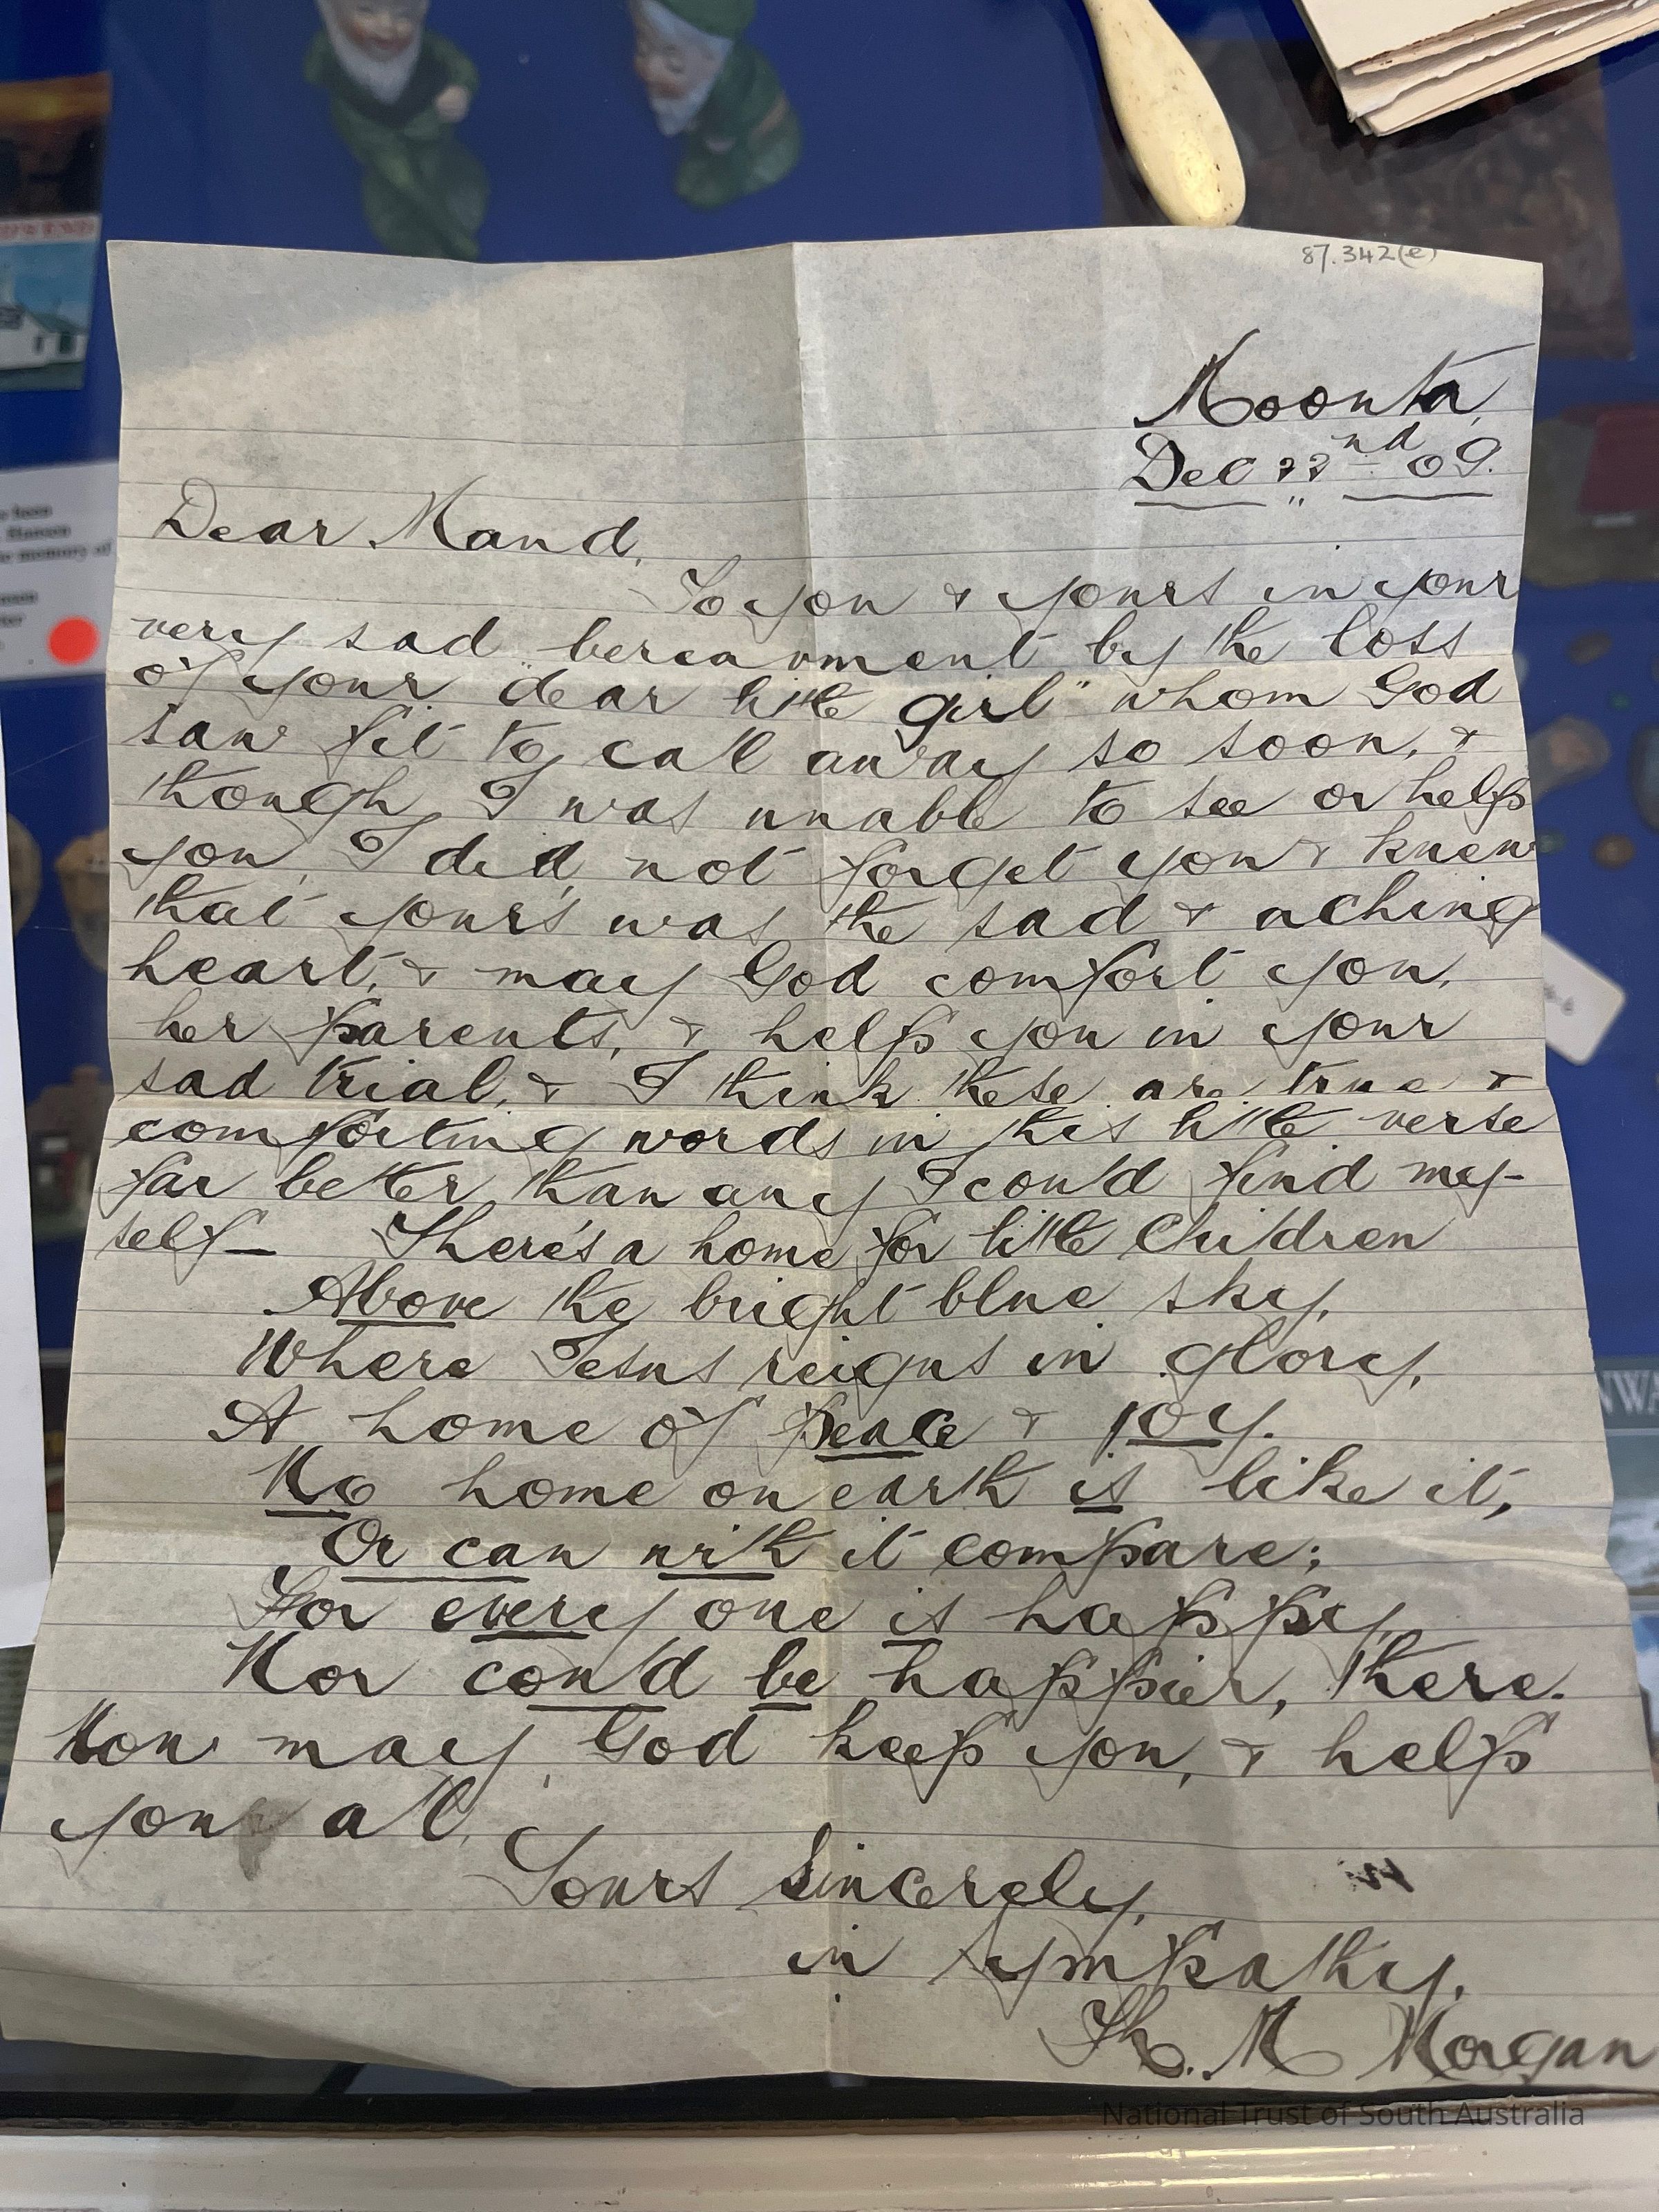 87.342(e)
Moonta,
Dec 22nd 09.
Dear Maud,
To you & yours in your
very sad bereavment by the loss
of your "dear little girl" whom God
saw fit to call away so soon, &
though I was unable to see or help
you, I did not forget you & knew
that your's was the sad & aching
heart, & may God comfort you,
her parents, & help you in your
sad trial, & I think these are true &
comforting words in this little verse
far better than any I could find my-
self— There's a home for little Children
Above the bright blue sky,
Where Jesus reigns in glory,
A home of peace & joy.
No home on earth is like it,
Or can with it compare;
For every one is happy,
Nor could be happier, there.
Now may God keep you, & help
you all,
Yours Sincerely,
in sympathy,
Th. M Morgan
National Trust of South Australia